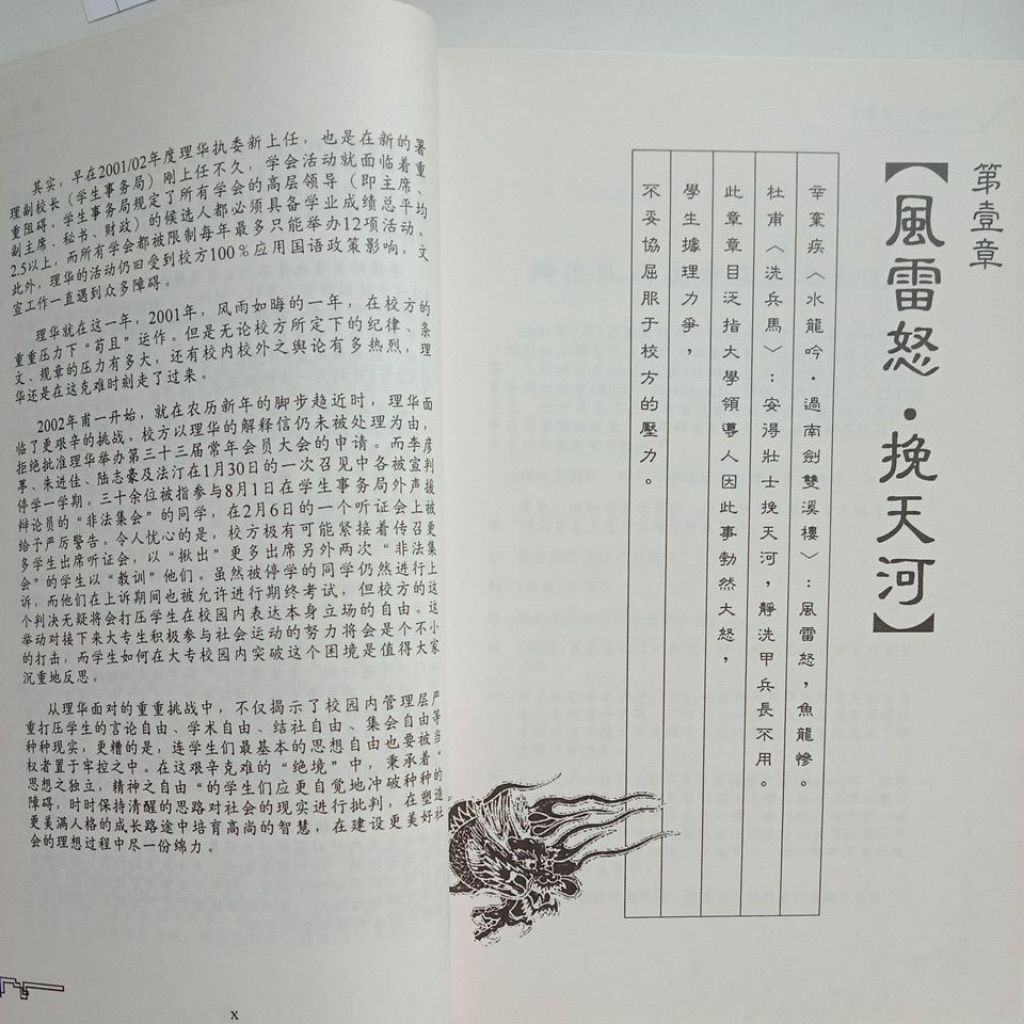 其实，早在2001/02年度理华执委新上任，也是在新的署
理副校长（学生事务局）刚上任不久，学会活动就面临着重
重阻碍。学生事务局规定了所有学会的高层领导（即主席、
副主席、秘书、财政）的候选人都必须具备学业成绩总平均
2.5以上，而所有学会都被限制每年最多只能举办12项活动。
此外，理华的活动仍旧受到校方100％应用国语政策影响，文
宣工作一直遇到众多障碍。
理华就在这一年，2001年，风雨如晦的一年，在校方的
重重压力下“苟且”运作。但是无论校方所定下的纪律、条
文、规章的压力有多大，还有校内校外之舆论有多热烈，理
华还是在这克难时刻走了过来。
2002年甫一开始，就在农历新年的脚步趋近时，理华面
临了更艰辛的挑战。校方以理华的解释信仍未被处理为由，
拒绝批准理华举办第三十三届常年会员大会的申请。而李彦
葶、朱进佳、陆志豪及法汀在1月30日的一次召见中各被宣判
停学一学期。三十余位被指参与8月1日在学生事务局外声援
辩论员的“非法集会”的同学，在2月6日的一个听证会上被
给予严厉警告。令人忧心的是，校方极有可能紧接着传召更
多学生出席听证会，以“揪出”更多出席另外两次“非法集
会”的学生以“教训”他们。虽然被停学的同学仍然进行上
诉，而他们在上诉期间也被允许进行期终考试，但校方的这
个判决无疑将会打压学生在校园内表达本身立场的自由。这
举动对接下来大专生积极参与社会运动的努力将会是个不小
的打击，而学生如何在大专校园内突破这个困境是值得大家
沉重地反思。
从理华面对的重重挑战中，不仅揭示了校园内管理层严
重打压学生的言论自由、学术自由、结社自由、集会自由等
种种现实，更糟的是，连学生们最基本的思想自由也要被当
权者置于牢控之中。在这艰辛克难的“绝境”中，秉承着“
思想之独立，精神之自由“的学生们应更自觉地冲破种种的
障碍，时时保持清醒的思路对社会的现实进行批判，在塑造
更美满人格的成长路途中培育高尚的智慧，在建设更美好社
会的理想过程中尽一份绵力。
x
第壹章
【風雷怒・挽天河】
辛棄疾〈水龍吟．過南劍雙溪樓〉：風雷怒，魚龍慘。
杜甫〈洗兵馬〉：安得壯士挽天河，靜洗甲兵長不用。
此章章目泛指大學領導人因此事勃然大怒，
學生據理力爭，
不妥協屈服于校方的壓力。